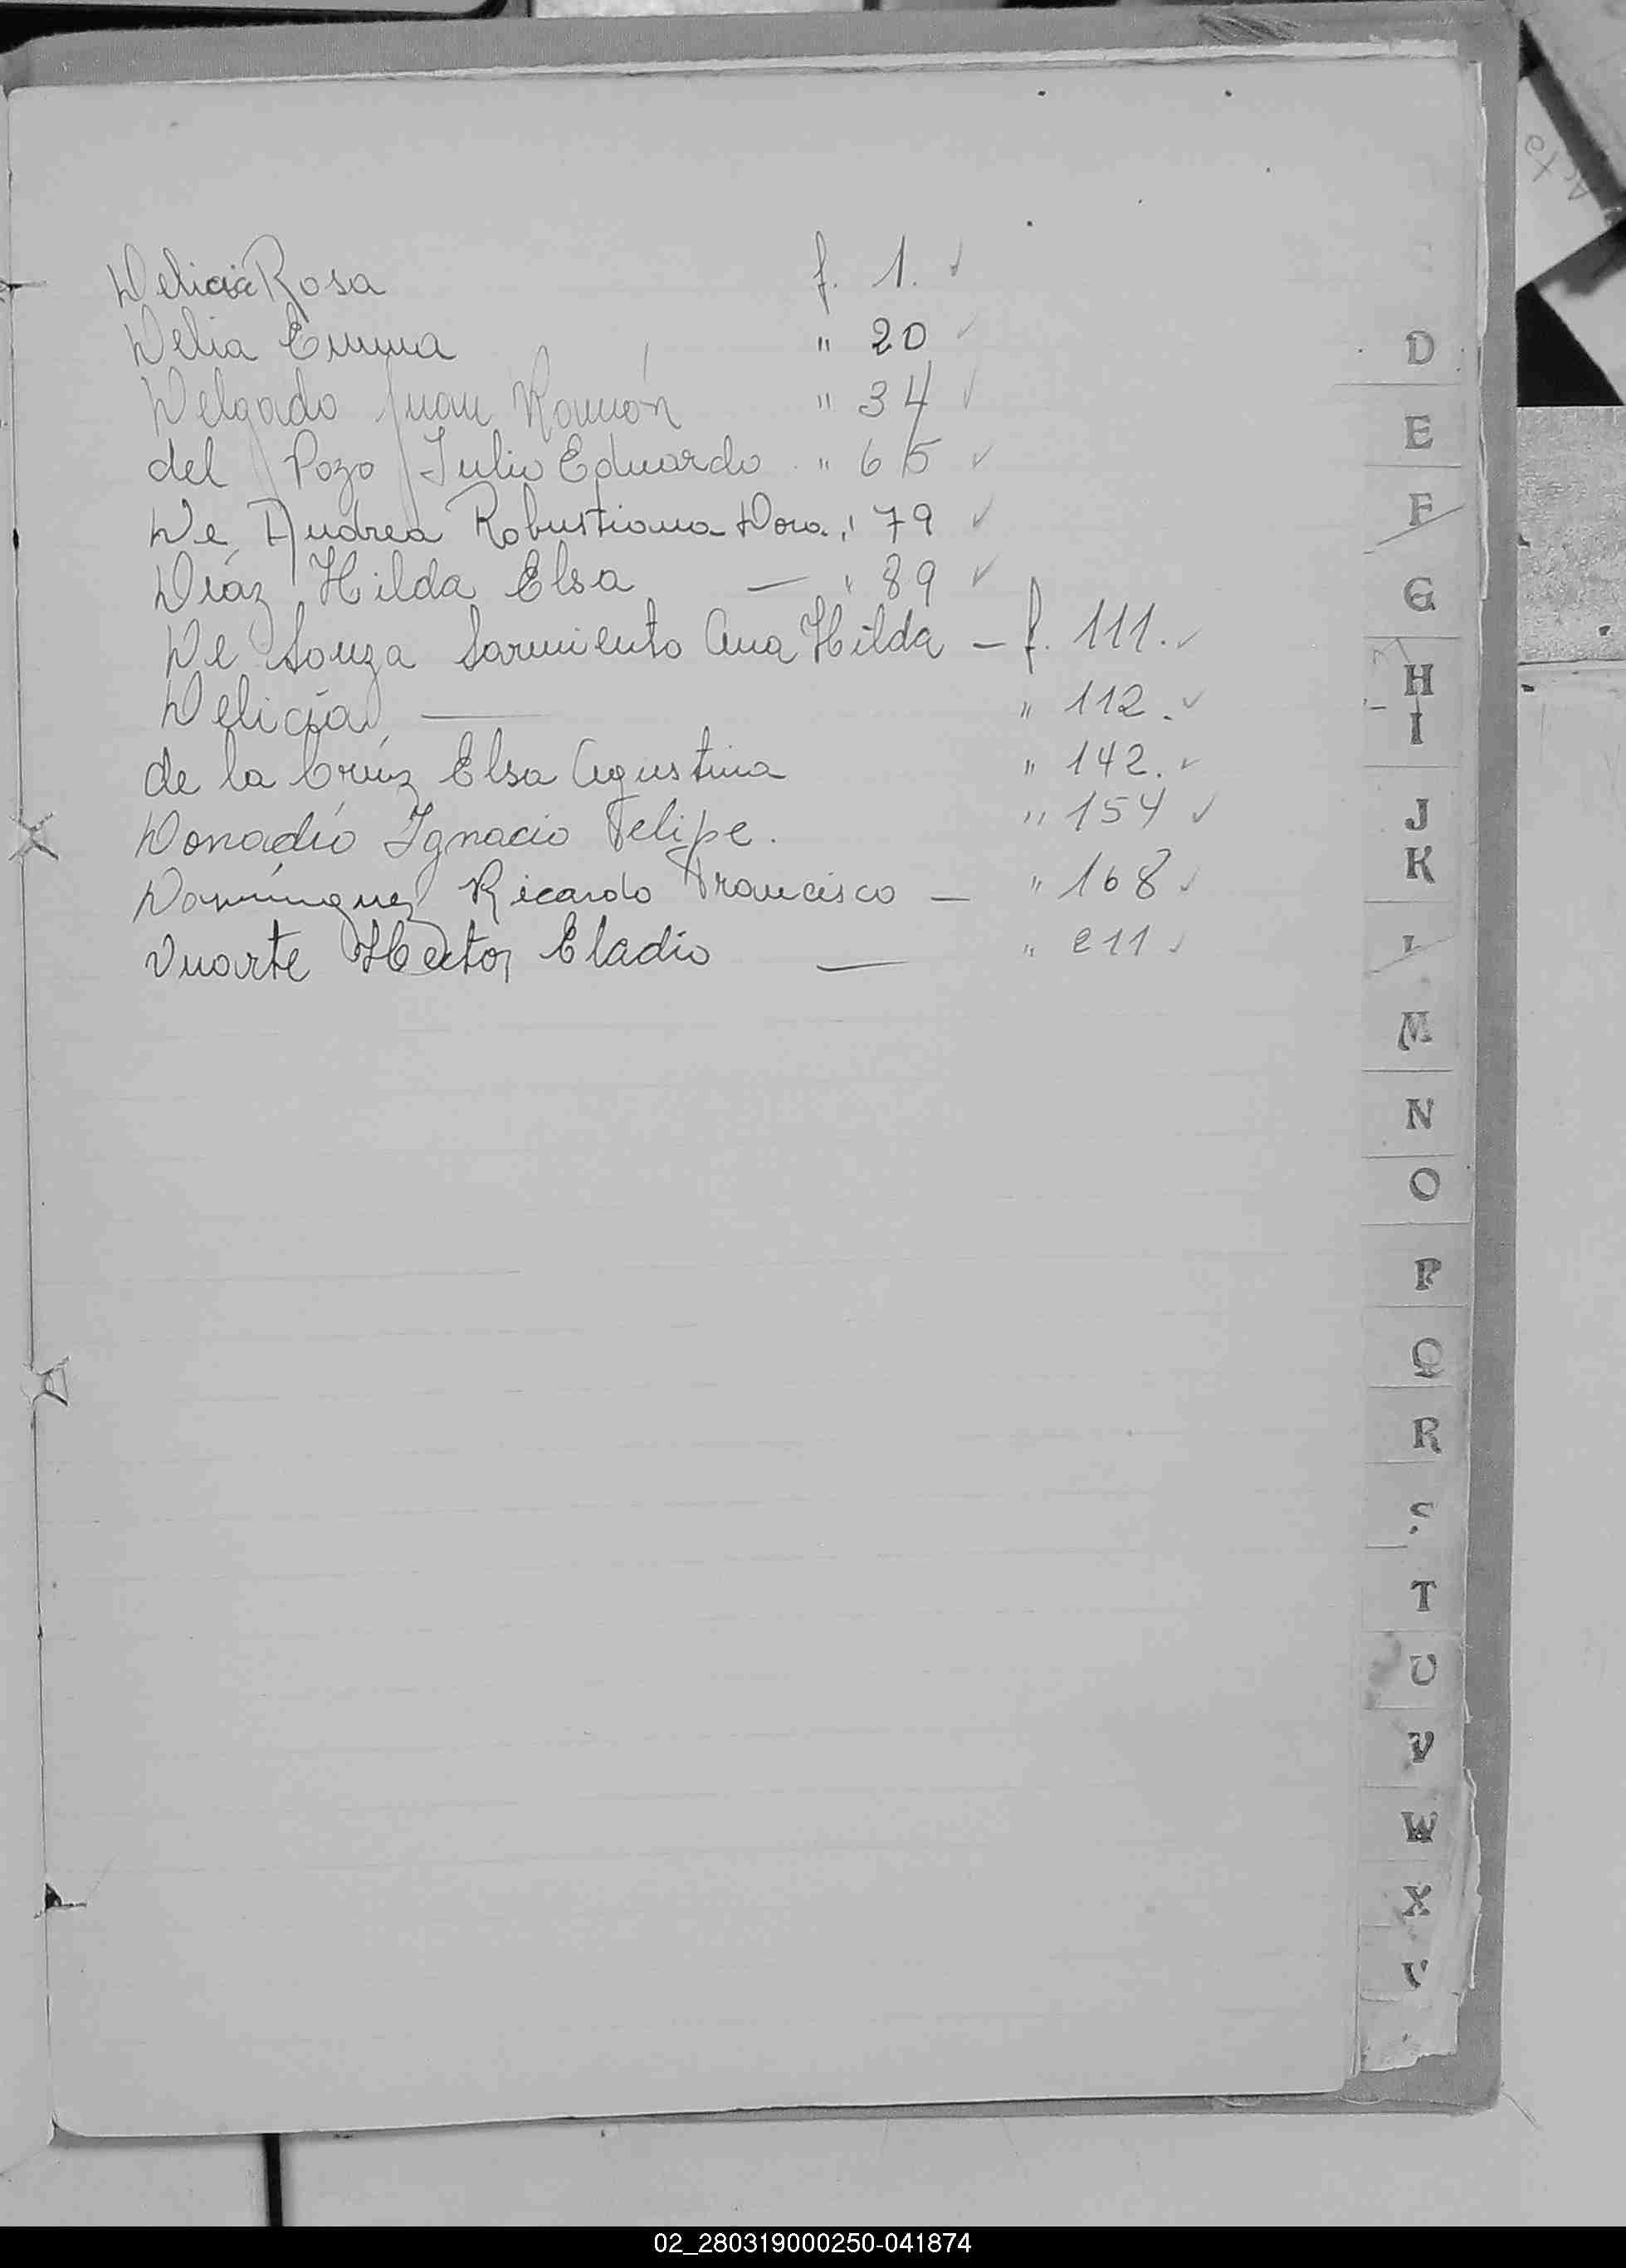 Delicia Rosa f. 1. ✓
Delia Emma " 20 ✓
Delgado Juan Ramón " 34 ✓
del Pozo Julio Eduardo " 65 ✓
De Andrea Robustiana Dora " 79 ✓
Díaz Hilda Elsa — " 89 ✓
De Souza Sarmiento Ana Hilda — f. 111. ✓
Delicia — " 112. ✓
de la Cruz Elsa Agustina " 142. ✓
Donadío Ignacio Felipe. " 154 ✓
Domínguez Ricardo Francisco — " 168 ✓
Duarte Hector Eladio — " 211 ✓
D
E
F
G
H
I
J
K
L
M
N
O
P
Q
R
S
T
U
V
W
X
02_280319000250-041874